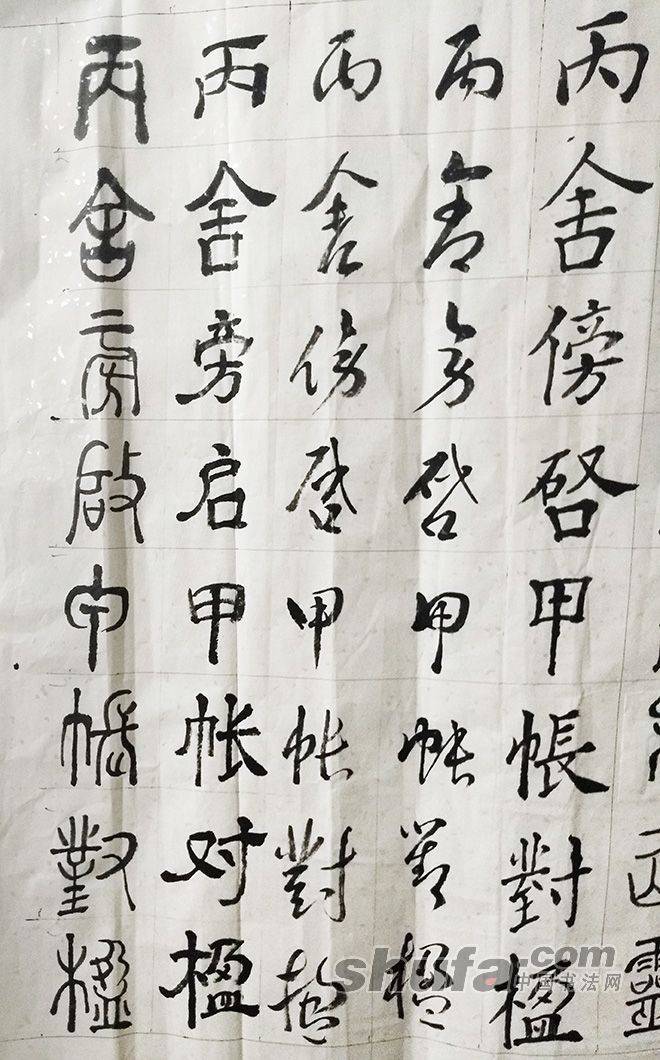 靈
丙舍傍啓甲帳對楹
丙舍旁啓甲帳對楹
丙舍傍啓甲帳對楹
丙舍旁启甲帐对楹
丙舍旁啟甲帳對楹
shufa.com
中国书法网